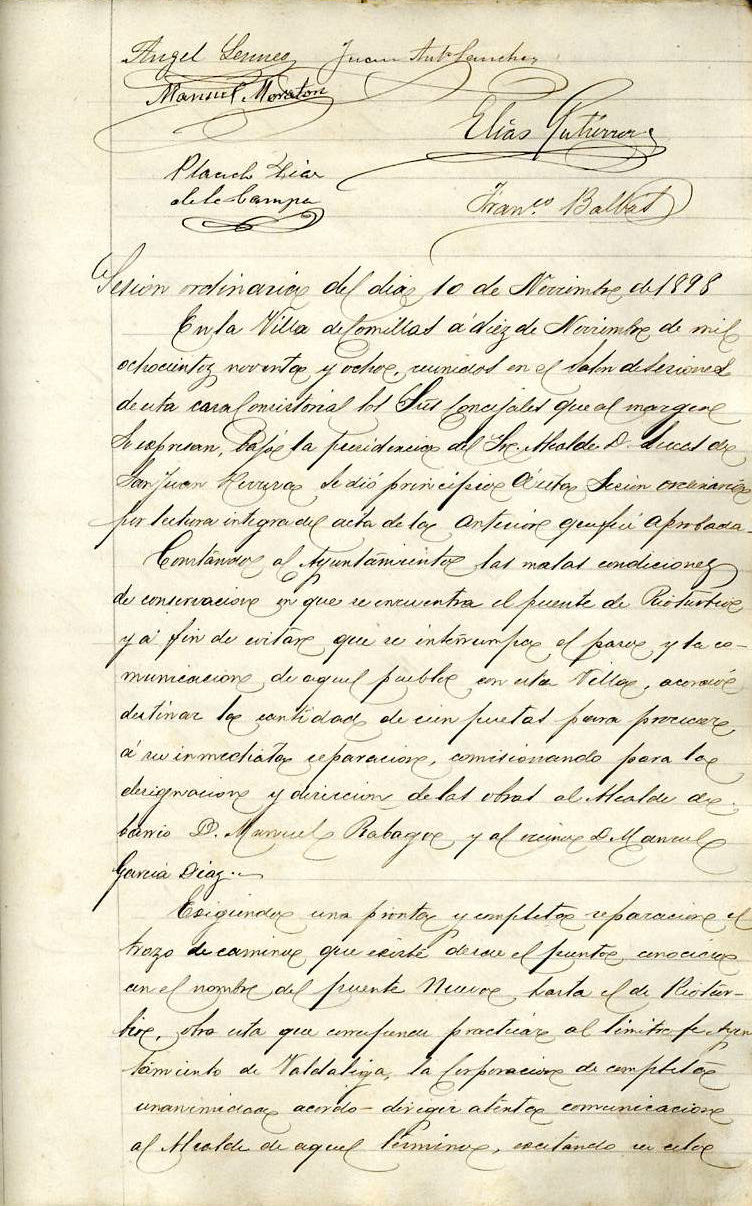 Angel        Juan Antº Sanchez
Manuel Moraton
Elías Gutierrez
Placido Diaz
de la Campa
Franco Balbas
Sesión ordinaria del dia 10 de Noviembre de 1898
En la Villa de Comillas á diez de Noviembre de mil
ochocientos noventa y ocho, reunidos en el salon de sesiones
de esta casa Consistorial los Sres Concejales que al margen
se expresan, bajo la presidencia del Sr. Alcalde D. Lucas de
San Juan Herrera se dió principio á esta sesion ordinaria
por lectura integra del acta de la anterior que fué aprobada.
Constando al Ayuntamiento las malas condiciones
de conservacion en que se encuentra el puente de Rioturbio
y á fin de evitar que se interrumpa el paso y la co-
municacion de aquel pueblo con esta Villa, acordó
destinar la cantidad de cien pesetas para procurar
á su inmediata reparacion, comisionando para la
designacion y direccion de las obras al Alcalde de
barrio D. Manuel Rabago y al vecino D Manuel
Garcia Diaz.
Exigiendo una pronta y completa reparacion el
trozo de camino que existe desde el punto conocido
con el nombre del puente Nuevo hasta el de Riotur-
bio, obra esta que corresponde practicar al limitrofe Ayun
tamiento de Valdaliga, la Corporacion de completa
unanimidad acordó dirigir atenta comunicacion
al Alcalde de aquel término, excitando su celo